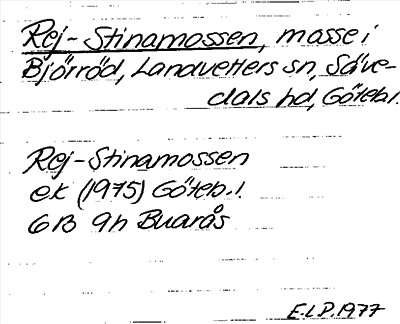 Rej-Stinamossen, mosse i
Björröd, Landvetters sn, Säve-
dals hd, Götebl.
Rej-Stinamossen
ek (1975) Göteb.l
6B 9h Buarås
E.L.P. 1977